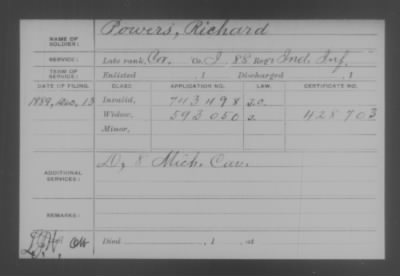 Powers, Richard
NAME OF SOLDIER:
SERVICE: Late rank, Cor. Co. I, 88 Reg't Ind. Inf.
TERM OF SERVICE: Enlisted , 1 Discharged , 1
DATE OF FILING. CLASS. APPLICATION NO. LAW. CERTIFICATE NO.
Invalid, 743498
Widow, 593050 428703
Minor,
ADDITIONAL SERVICES: D, 8 Mich. Cav.
REMARKS:
Died , 1 , at